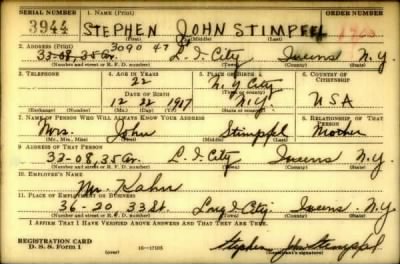 SERIAL NUMBER 1. NAME (Print) ORDER NUMBER
3944 STEPHEN JOHN STIMPFEL
(First) (Middle) (Last)
2. ADDRESS (Print) 3090 47
33-08, 35 Av. L. I. City Queens N.Y.
(Number and street or R. F. D. number) (Town) (County) (State)
3. TELEPHONE 4. AGE IN YEARS 5. PLACE OF BIRTH 6. COUNTRY OF CITIZENSHIP
22 N.Y. City
DATE OF BIRTH
12 22 1917 N.Y. USA
(Exchange) (Number) (Mo.) (Day) (Yr.) (State or country)
7. NAME OF PERSON WHO WILL ALWAYS KNOW YOUR ADDRESS 8. RELATIONSHIP OF THAT PERSON
Mrs. John Stimpfel Mother
(Mr., Mrs., Miss) (First) (Middle) (Last)
9. ADDRESS OF THAT PERSON
33-08, 35 Av. L. I. City Queens N.Y.
(Number and street or R. F. D. number) (Town) (County) (State)
10. EMPLOYER'S NAME
Mr. Kahn
11. PLACE OF EMPLOYMENT OR BUSINESS
36-20 33 St Long I. City. Queens N.Y.
(Number and street or R. F. D. number) (Town) (County) (State)
I AFFIRM THAT I HAVE VERIFIED ABOVE ANSWERS AND THAT THEY ARE TRUE.
REGISTRATION CARD
D. S. S. Form 1 (over) Stephen John Stimpfel
(Registrant's signature)